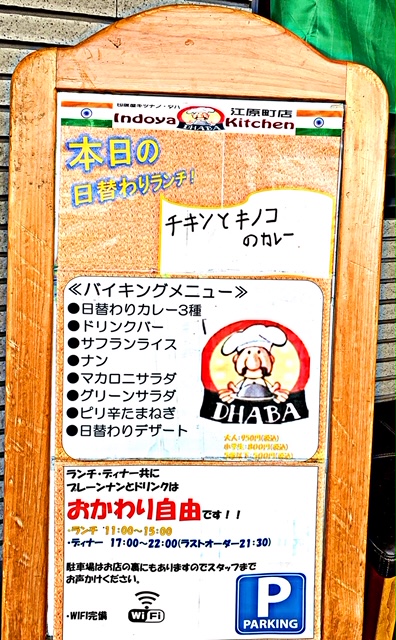 印度屋キッチン・ダバ 江原町店
Indoya Kitchen
DHABA
本日の
日替わりランチ！
チキンとキノコ
のカレー
≪バイキングメニュー≫
●日替わりカレー3種
●ドリンクバー
●サフランライス
●ナン
●マカロニサラダ
●グリーンサラダ
●ピリ辛たまねぎ
●日替わりデザート
DHABA
大人:950円(税込)
ランチ・ディナー共に
プレーンナンとドリンクは
おかわり自由です！！
・ランチ 11:00～15:00
・ディナー 17:00～22:00(ラストオーダー21:30)
駐車場はお店の裏にもありますのでスタッフまで
お声かけください。
・WIFI完備
WiFi
P
PARKING